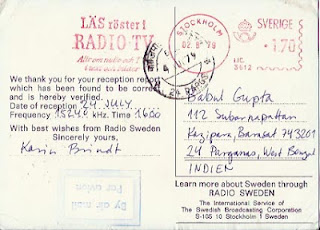 LÄS röster i
RADIO·TV
STOCKHOLM
1
02.8.79
SVERIGE
1.70
We thank you for your reception report
which has been found to be correct
and is hereby verified.
Date of reception 24 JULY
Frequency 15240 kHz. Time 1600
With best wishes from Radio Sweden
Sincerely yours.
Karin Brindt
Babul Gupta
112 Subarnapattan
Kazipara, Barasat 743201
24 Parganas, West Bengal
INDIEN
By air mail
Par avion
Learn more about Sweden through
RADIO SWEDEN
The International Service of
The Swedish Broadcasting Corporation
S-105 10 Stockholm 1 Sweden